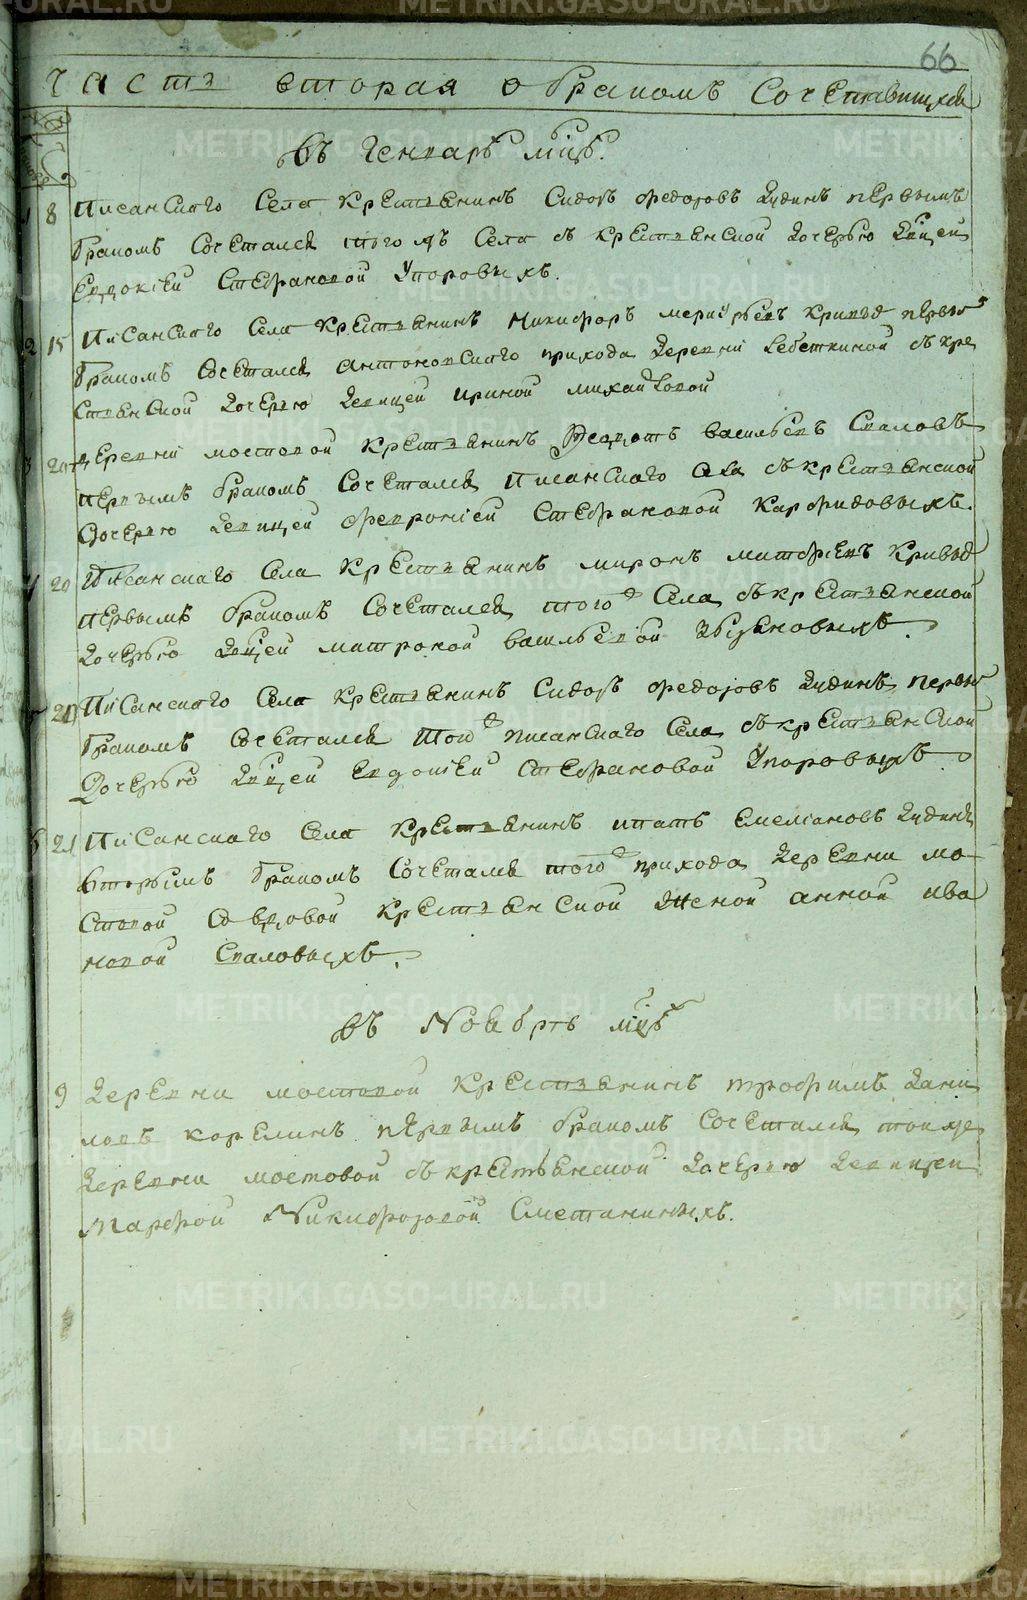 66
Часть вторая о браком Сочетавшихся
въ Генварѣ мцѣ.
1 8 Писанскаго Села крестьянинъ Сидоръ Федоровъ Дудинъ первымъ
бракомъ Сочетался того жъ Села съ крестьянской дочерью Двцей
Евдокіей Стефановой Упоровыхъ.
2 15 Писанскаго Села крестьянинъ Никифоръ меркурьевъ первы
бракомъ Сочетался антоновскаго прихода деревни съ кре
стьянской дочерью девицей ириной михайловой
3 20 деревни мостовой крестьянинъ Федотъ васильевъ Скаловъ
первымъ бракомъ Сочетался Писанскаго Села съ крестьянской
дочерью девицей февроніей Стефановой Карфидовыхъ.
4 20 Писанскаго Села крестьянинъ миронъ матфеевъ
первымъ бракомъ Сочетался того Села съ крестьянской
дочерью Двцей матроной васильевой
21 Писанскаго Села крестьянинъ Сидоръ федоровъ Дудинъ первы
бракомъ Сочетался того Писанскаго Села съ крестьянской
Дочерью Двцей Евдокіей Стефановой Упоровыхъ
21 Писанскаго Села крестьянинъ Емеліановъ Дудинъ
вторымъ бракомъ Сочетался того прихода Деревни мо-
стовой Со вдовой крестьянской женой анной ива
новой Скаловыхъ.
въ Ноябрѣ мцѣ
9 Деревни мостовой крестьянинъ трофимъ Дани
ловъ корелинъ первымъ бракомъ Сочетался тоя же
Деревни мостовой съ крестьянской Дочерью Девицеи
Марфой Никифоровой Сметаниныхъ.
METRIKI.GASO-URAL.RU